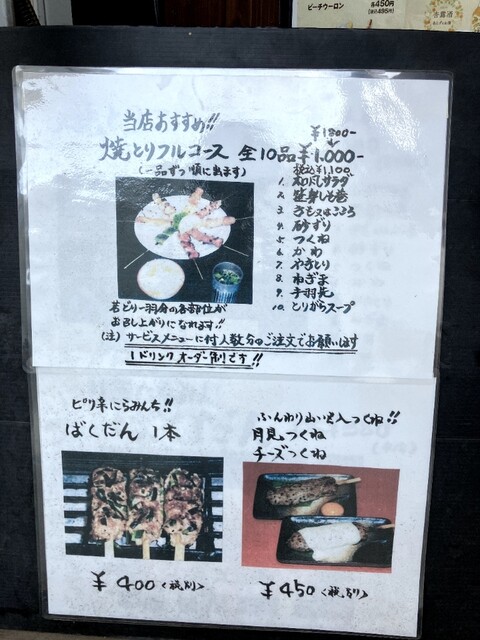 ピーチウーロン
各450円
(税込495円)
当店おすすめ!!
¥1800-
焼とりフルコース 全10品¥1,000-
(一品ずつ順に出ます)
税込¥1,100
1. むしサラダ
2. 笹身しそ巻
3. きも又はこころ
4. 砂ずり
5. つくね
6. かわ
7. やきとり
8. ねぎま
9. 手羽先
10. とりがらスープ
若どり一羽分の各部位が
お召し上がりになれます!!
(注) サービスメニューに付人数分のご注文でお願いします
1ドリンクオーダー制です!!
ピリ辛にらみんち!!
ばくだん 1本
¥400<税別>
ふんわり山いも入つくね!!
月見つくね
チーズつくね
¥450<税別>